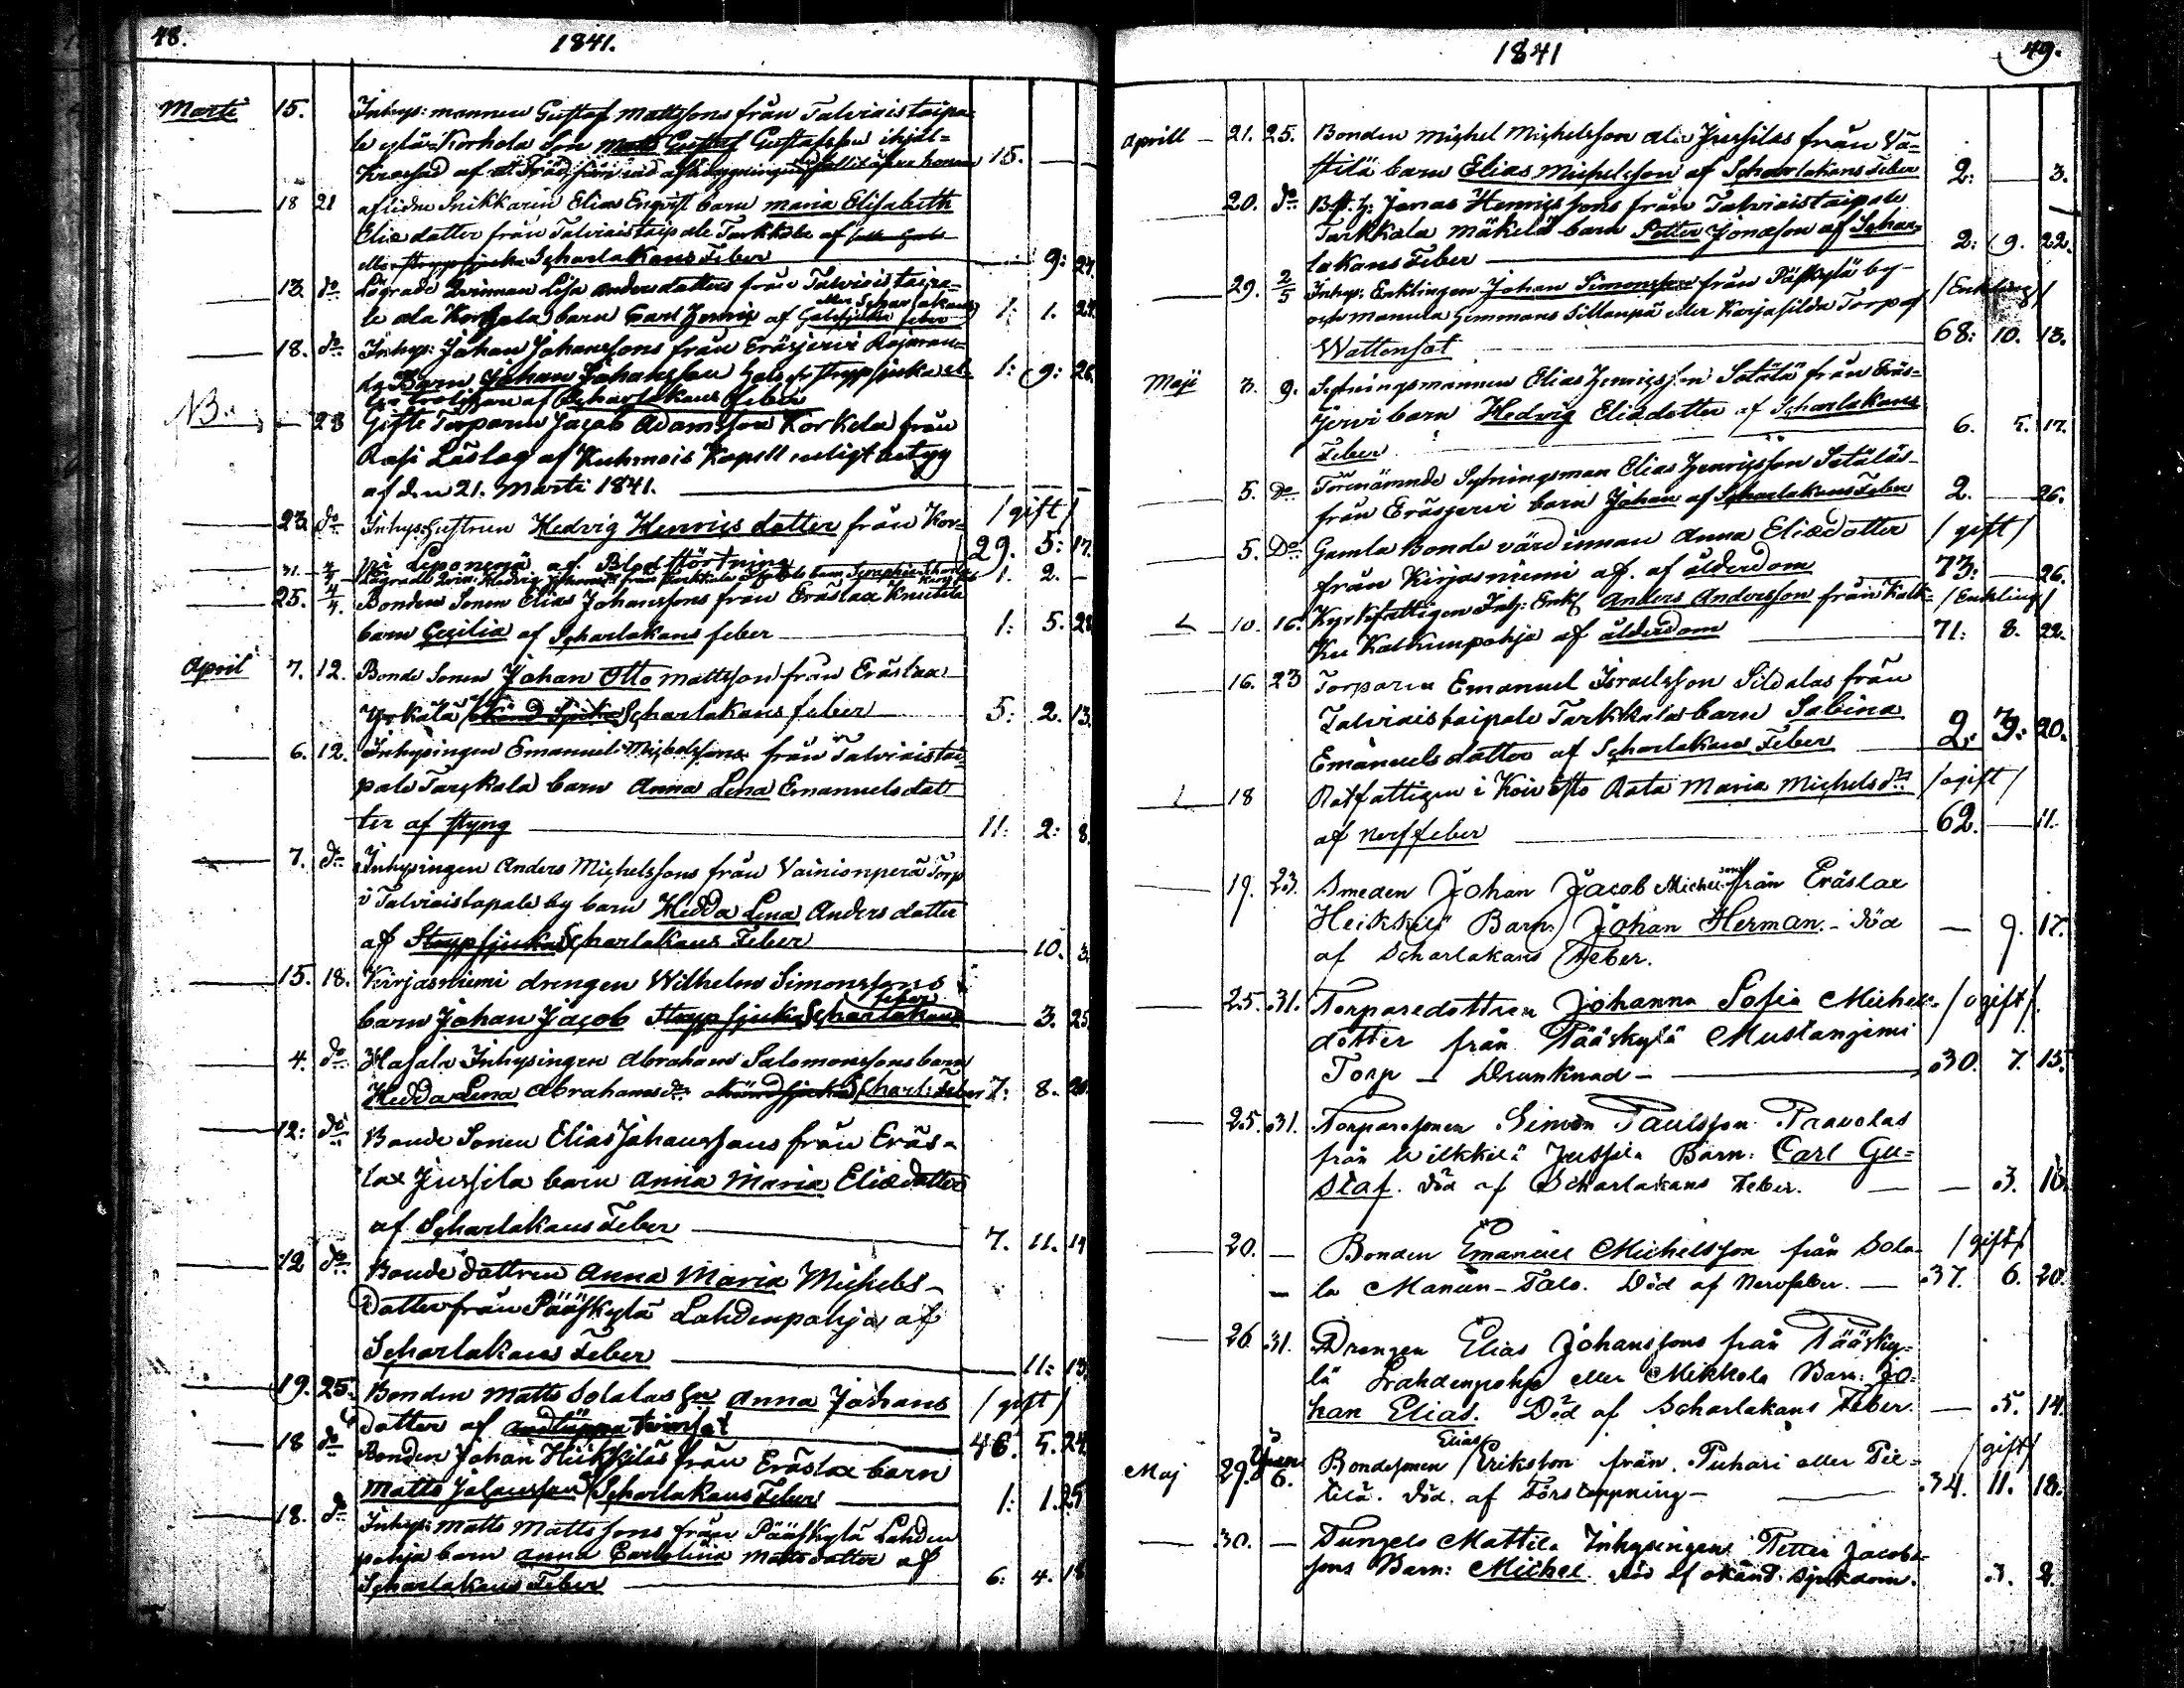 48.
1841.
Marti 15. Inhys: mannen Gustaf Mattssons från Talviaistaipa=
le ylä-Korhola Son Matts Gustaf Gustafsson ihjäl=
Krossad af ett Träd, som vid afhuggningen fallit öfver honom 15. —
18 21 aflidne Snikkarin Elias Enqvist barn Maria Elisabeth
Eliæ datter från Talviaistaipale Tarkkala af
Scharlakans Feber — 9: 27.
13. do Lägrade Qvinnan Lisa Andersdotters från Talviaistaipa=
le ala Korhola barn Carl Henric af Halssjuka eller Scharlakans feber 1: 1. 24.
18. do Inhys: Johan Johanssons från Eräsjervi Rajaran=
da Barn Johan Johansson Hals och Strypsjuka el= 1: 9: 26.
af Scharlakans feber
NB. — 23 Gifte Torparen Jacob Adamsson Korkela från
Rasi Läslag af Kuhmois Kapell enligt betyg
af den 21. Marti 1841.
23. do Inhys. Hustrun Hedvig Henrics dotter från Kor= / gift /
pi Leponemä af Blodstörtning 29. 5: 17.
31. 4/4 Lägrade Qvin: Hedvig 1. 2. —
25. 4/4. Bonden Sonen Elias Johanssons från Eräslax Knuutila
barn Cecilia af Scharlakans feber 1: 5. 28
April 7. 12. Bonde Sonen Johan Otto Mattsson från Eräslax
Yrkälä af okänd Sjuka Scharlakans feber 5: 2. 13.
6. 12. Inhysingen Emanuel Michelssons från Talviaistai=
pale Tarkkala barn Anna Lena Emanuelsdot
ter af styng 11: 2: 8.
7. do Inhysingen Anders Michelssons från Vainionperä Torp
i Talviaistapale by barn Hedda Lena Anders datter
af Strypsjuka Scharlakans Feber 10. 3.
15. 18. Kirjasniemi drengen Wilhelm Simonssons
barn Johan Jacob Strypsjuka Scharlakans feber 3. 25
4. do Hasala Inhysingen Abraham Salomonssons barn
Hedda Lena Abrahams dr okänd sjuka Scharl: Feber 7: 8. 20.
12: do Bonde Sonen Elias Johanssons från Eräs=
lax Jussila barn Anna Maria Eliædotter
af Scharlakans Feber 7. 11. 14
12 do Bonde dottren Anna Maria Michels=
Dotter från Pääskylä Lahdenpohja af
Scharlakans Feber 11: 13.
19. 25. Bonden Matts Solalas Hu Anna Johans / gift /
dotter af andtäppa 46. 5. 24.
18 do Bonden Johan Heikkiläs från Eräslax barn
Matts Johansson Scharlakans Feber 1: 1. 29
18. do Inhys: Matts Mattssons från Pääskylä Lahden
pohja barn Anna Carolina Mattsdotter af
Scharlakans Feber 6: 4. 18
1841
49.
Aprill — 21. 25. Bonden Michel Michelsson ala Jussilas från Vä=
stilä barn Elias Michelsson af Scharlakans Feber 2: — 3.
20. do Jonas Henricssons från Talviaistaipale
Tarkkala Mäkelä barn Petter Jonasson af Schar=
lakans Feber 2: 9. 22.
29. 2/5 Inhys: Enklingen Johan Simonsson från Pääskylä by / Enkling /
och Mannila Hemmans Sillanpä eller Karjasilda Torp af
Wattensot 68: 10. 13.
Maji 3. 9. Sexningsmannen Elias Henricsson Sätälä från Eräs=
jervi barn Hedvig Eliædotter af Scharlakans
Feber 6. 5. 17.
5. Do Förenämnde Sexningsman Elias Henricsson Sätäläs
från Eräsjervi barn Johan af Scharlakans Feber 2. — 26.
5. Do Gamla Bonde värdinnan Anna Eliædotter / gift /
från Kirjasniemi af. af ålderdom 73: 26.
10. 16. Kyrkfattigen Inh: Enkl Anders Andersson från Kalk= / Enkling /
ku Kalkunpohja af ålderdom 71: 8. 22.
16. 23 Torparen Emanuel Israelsson Sildalas från
Talviaistaipale Tarkkala barn Sabina
Emanuels dotter af Scharlakans Feber 2. 3: 20.
18 Rotfattigen i Koivisto Rota Maria Michelsdr / ogift /
af nerffeber 62. — 11.
19. 23. Smeden Johan Jacob Michelssons från Eräslax
Heikkilä Barn Johan Herman. Död — 9. 17.
af Scharlakans Feber.
25. 31. Torparedottren Johanna Sofia Michels= / ogift /
dotter från Pääskylä Mustanjemi
Torp — Drunknad — 30. 7. 15.
25. 31. Torparesonen Simon Paulsson Paavolas
från Wilkkilä Jussila Barn: Carl Gu=
staf. död af Scharlakans Feber. — — 3. 16.
20. — Bonden Emanuel Michelsson från Sola= / gift /
la Manun-Talo. Död af Nervfeber. — 37. 6. 20.
26 31. Drengen Elias Johanssons från Pääsky=
lä Lahdenpohja eller Mikkola Barn: Jo=
han Elias. Död af Scharlakans Feber. — 5. 14.
Maj 29. Juni 6. Bondesonen Elias Eriksson från Puhari eller Pie= / gift /
tilä. död. af Förstoppning — 34. 11. 18.
30. — Tungelo Mattila Inhysingen Petter Jacobs=
sons Barn: Michel död af okänd. sjukdom. 3. 2.